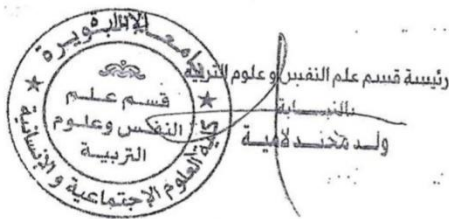 رئيسة قسم علم النفس وعلوم التربية
بالنيـــــابة
ولد محند لامية
البويرة
قسم علم
النفس وعلوم
التربية
كلية العلوم الإجتماعية و الإنسانية